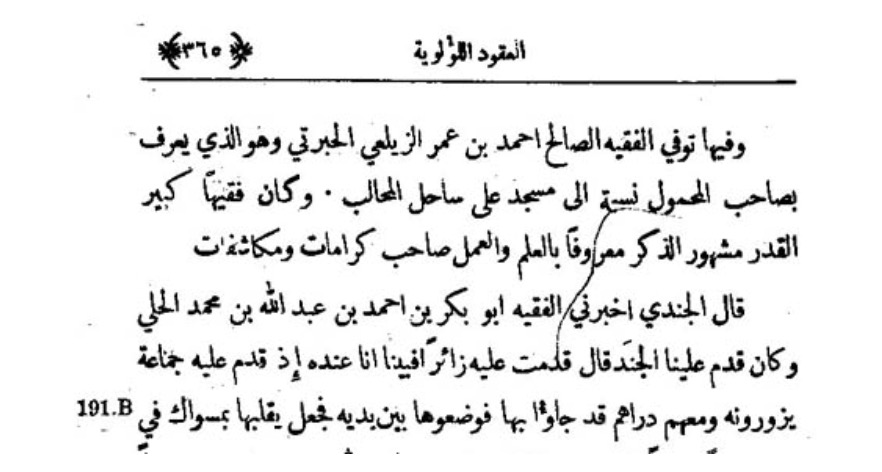 العقود اللؤلوية
﴿٣٦٥﴾
وفيها توفي الفقيه الصالح احمد بن عمر الزيلعي الجبرتي وهو الذي يعرف
بصاحب المحمول نسبة الى مسجد على ساحل المحالب · وكان فقيهًا كبير
القدر مشهور الذكر معروفًا بالعلم والعمل صاحب كرامات ومكاشفات
قال الجندي اخبرني الفقيه ابو بكر بن احمد بن عبد الله بن محمد الحلي
وكان قدم علينا الجَنَد قال قدمت عليه زائرًا فبينا انا عنده إِذ قدم عليه جماعة
يزورونه ومعهم دراهم قد جاوٴا بها فوضعوها بين يديه فجعل يقلبها بمسواك في
191.B